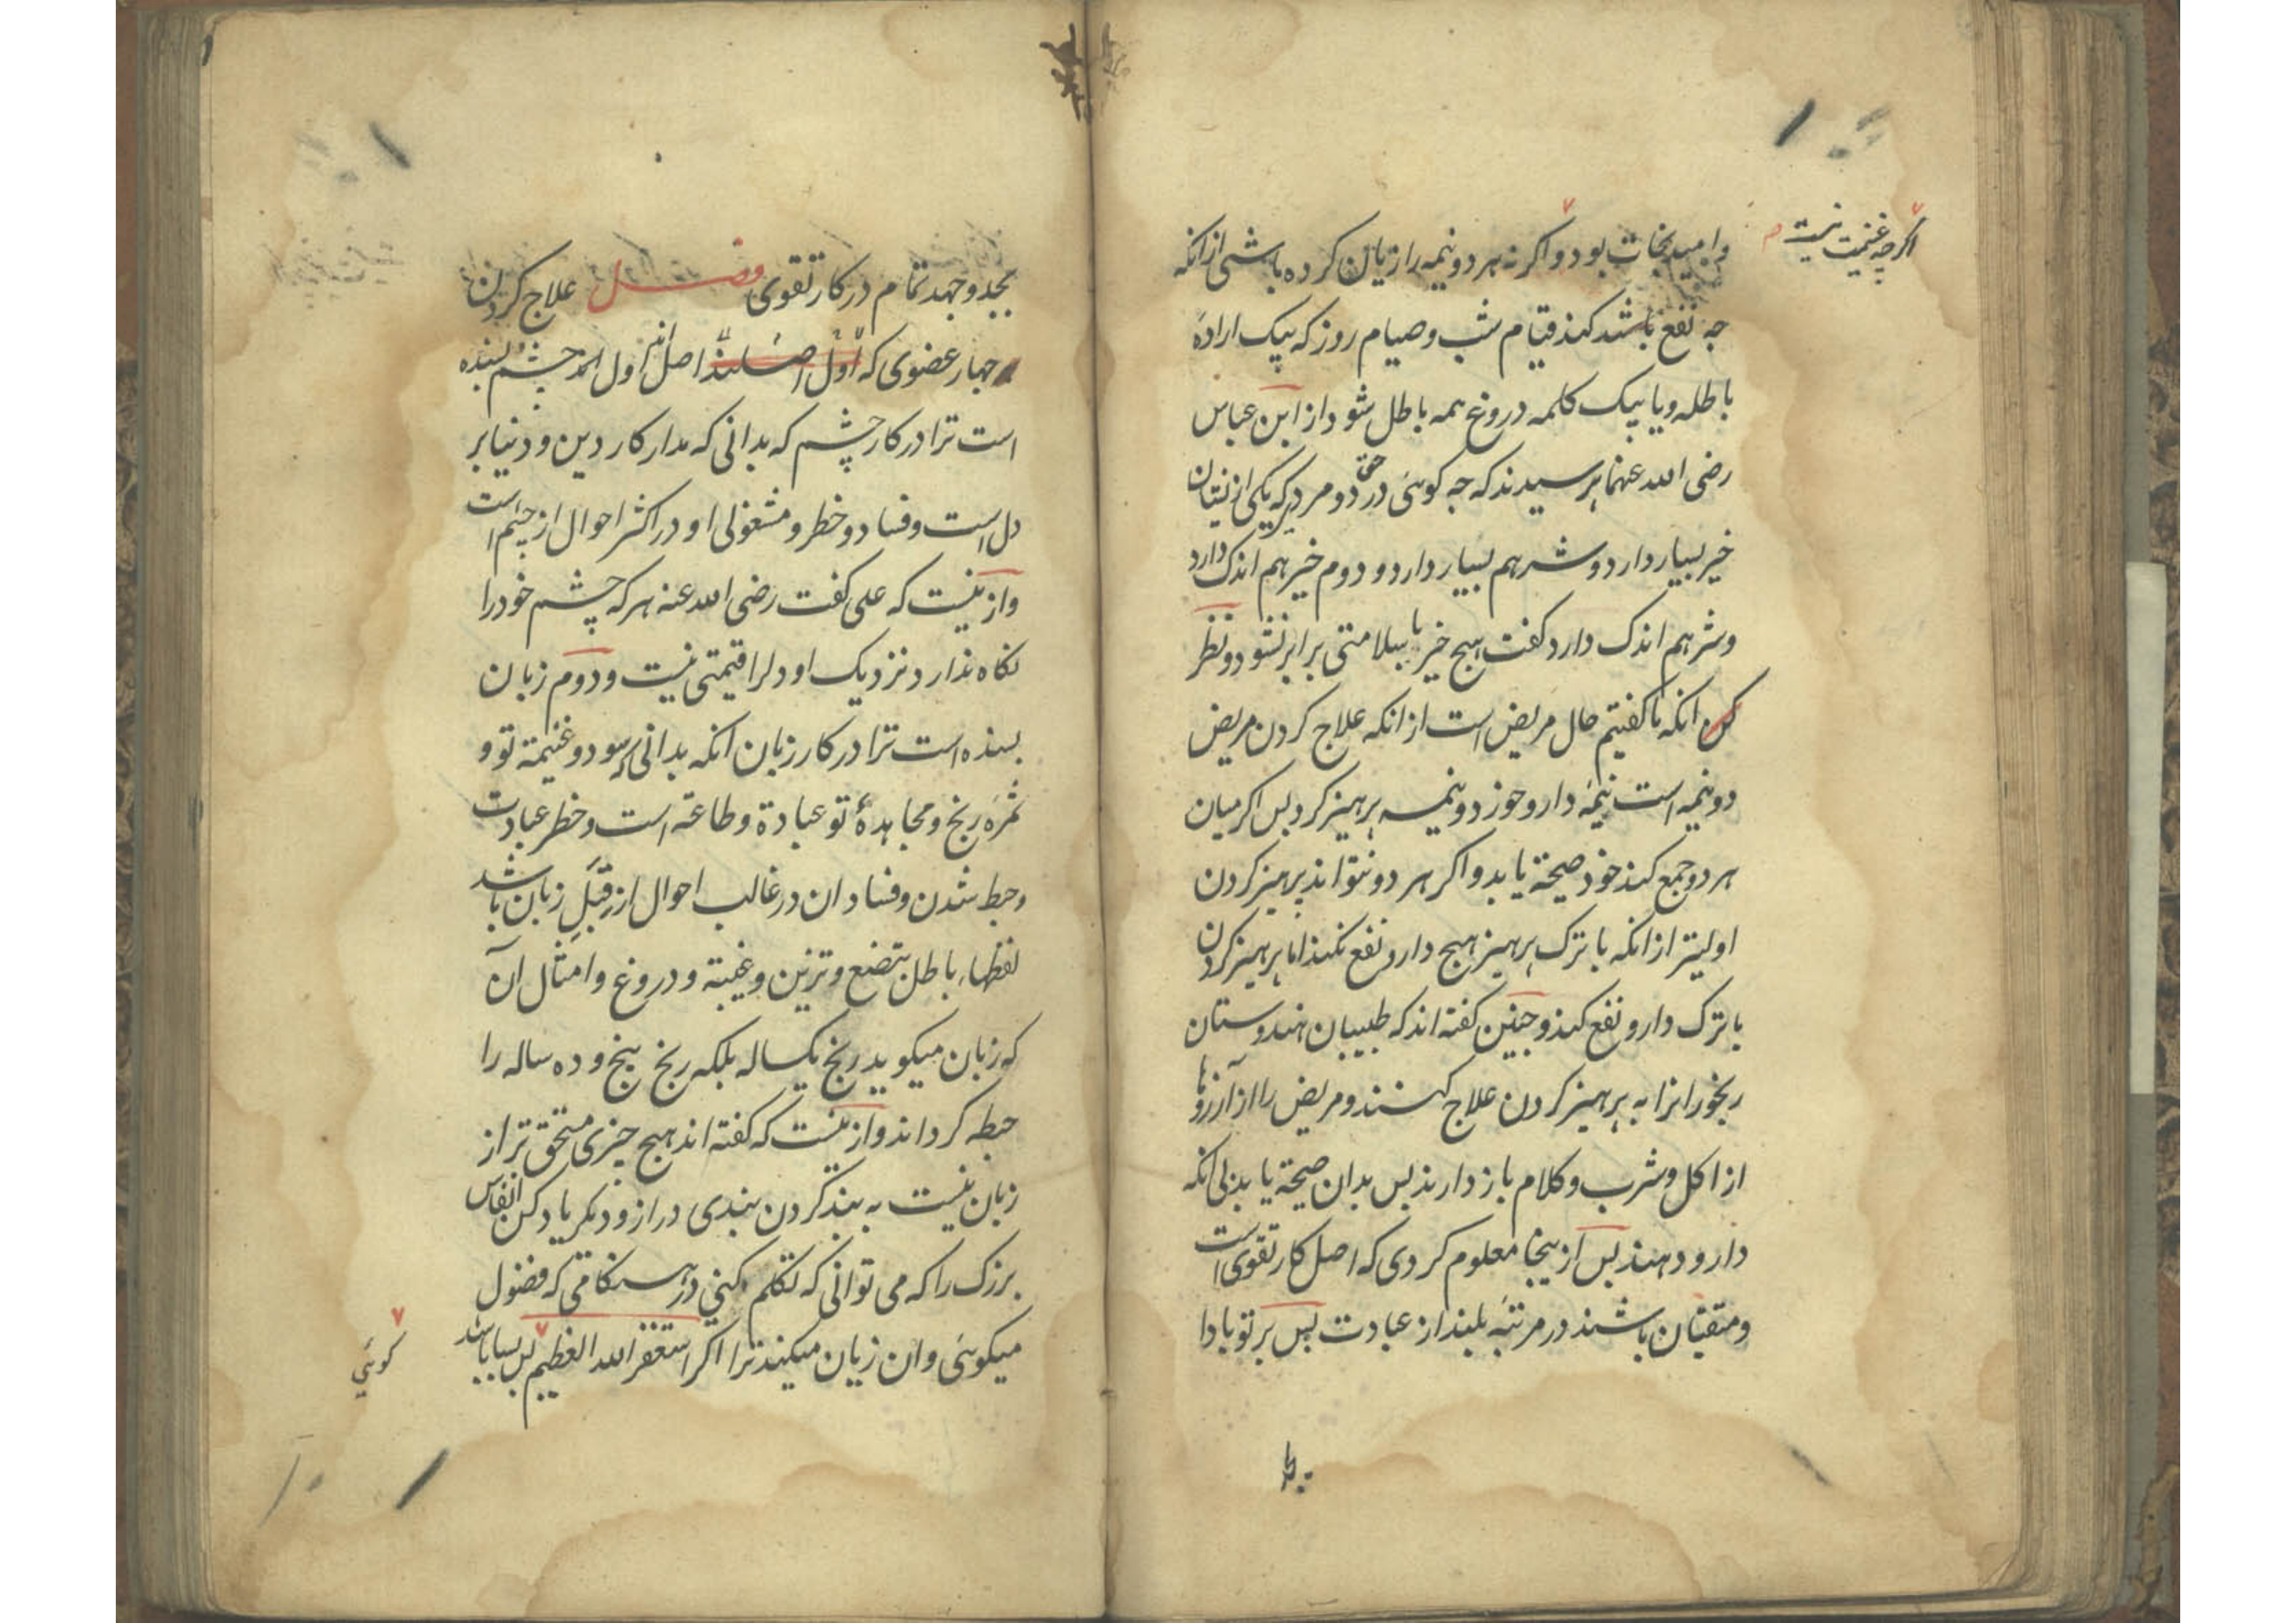 اکرچه غنیمت نیست م
وامید نجات بود و اکر نه هر دو نیمه را زیان کرده باشی از انکه
جه نفع باشد کند قیام شب و صیام روز که بیک ارادهٔ
باطله و یا بیک کلمه دروغ همه باطل شود از ابن عباس
رضی الله عنهما پرسیدند که جه کوئی در حق دو مرد که یکی از یشان
خیر بسیار دارد و شر هم بسیار دارد و دوم خیر هم اندک دارد
و شر هم اندک دارد کفت هیج خیر با سلامتی برابر نشود و نظر
کن انکه ما کفتیم حال مریض است از انکه علاج کردن مریض
دو نیمه است نیمهٔ دارو خوز دو نیمه پرهیز کرد بس اکر میان
هر دو جمع کند خود صیحة یابد و اکر هر دو نتواند پرهیز کردن
اولیتر از انکه با ترک پرهیز هیج دارو نفع نکند اما پرهیز کردن
با ترک دارو نفع کند و جنین کفته اند که طبیبان هندوستان
رنجورانرا به پرهیز کردن علاج کنند و مریض را از آرزوها
از اکل و شرب و کلام باز دارند بس بدان صیحة یابد بی انکه
دارو دهند بس از ینجا معلوم کردی که اصل کار تقوی است
و متقیان باشند در مرتبهٔ بلند از عبادت بس بر تو بادا
بجد
بجد و جهد تمام در کار تقوی فصل علاج کردن
جهار عضوی که اول اصلند اصل اول انکه جشم بسنده
است ترا در کار چشم که بدانی که مدار کار دین و دنیا بر
دل است و فساد و خطر و مشغولی او در اکثر احوال از جشم است
و از ینست که علی کفت رضی الله عنه هر که چشم خود را
نکاه ندارد نزدیک او دلرا قیمتی نیست و دوم زبان
بسنده است ترا در کار زبان انکه بدانی که سود و غنیمة تو و
ثمره رنج و مجاهدهٔ تو عبادة و طاعة است و خطر عبادت
و حبط شدن و فساد ان در غالب احوال از قبل زبان باشد
لفظهاء باطل بتصنع و تزین و غیبة و دروغ و امثال آن
که زبان میکوید رنج یکساله بلکه رنج پنج و ده ساله را
حبطه کرداند و از ینست که کفته اند هیج جیزی مستحق تر از
زبان نیست به بند کردن بندی دراز و دیکر یاد کن انفاس
بزرک را که می توانی که تکلم کنی در هنکامی که فضول
میکوئی و ان زیان میکند ترا اکر استغفر الله العظیم بس بسا باشد
کوئی